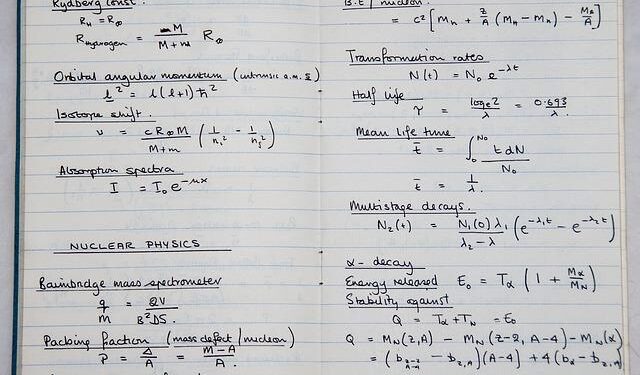 Rydberg const.
R_H = R_∞
R_Hydrogen = M / M+m R_∞
Orbital angular momentum (intrinsic a.m. s)
l² = l(l+1)ħ²
Isotope shift.
ν = cR_∞M / M+m (1/n₁² - 1/n₂²)
Absorption spectra
I = I₀e^-μx
NUCLEAR PHYSICS
Bainbridge mass spectrometer
q/m = 2V / B²DS.
Packing fraction (mass defect/nucleon)
P = Δ/A = M-A / A.
B.E / nucleon.
= c² [Mn + Z/A (MH - Mn) - Ma/A]
Transformation rates
N(t) = N₀ e^-λt
Half life
τ = log_e 2 / λ = 0.693 / λ.
Mean life time
t̄ = ∫₀^N₀ t dN / N₀
t̄ = 1/λ.
Multistage decays.
N₂(t) = N₁(0)λ₁ / λ₂-λ (e^-λ₁t - e^-λ₂t)
α-decay
Energy released E₀ = Tα (1 + Mα/MN)
Stability against
Q = Tα + TN = E₀
Q = MN(Z,A) - MN(Z-2, A-4) - MN(α)
= (b_Z-2,A-4 - b_Z,A)(A-4) + 4(bα - b_Z,A)